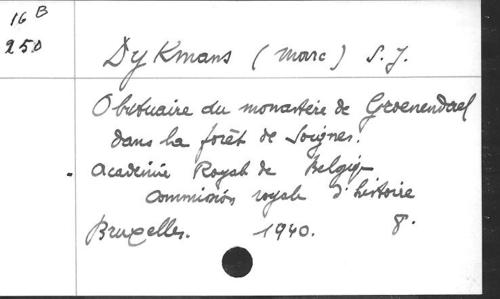 16 B
250
Dykmans (Marc) S. J.
Obituaire du monastère de Groenendael
dans la forêt de Soignes.
Académie Royale de Belgiq
Commission royale d'histoire
Bruxelles. 1940. 8.